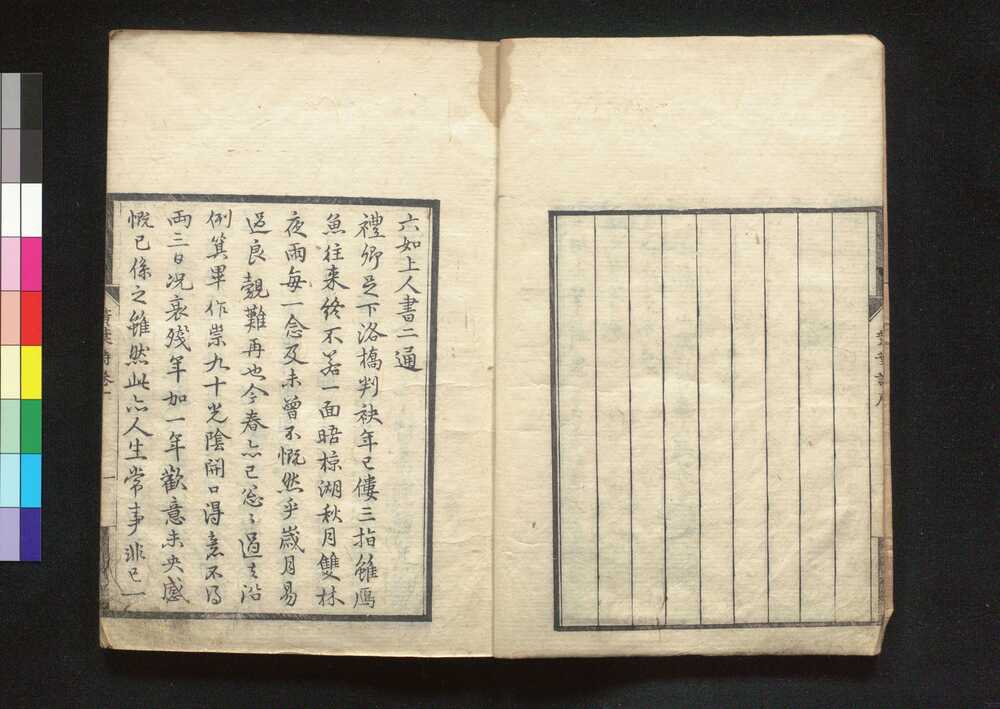 六如上人書二通
禮卿足下洛橋判袂年已僂三指雖鴈
魚往来終不若一面晤椋湖秋月雙林
夜雨每一念及未曾不慨然乎歲月易
過良覿難再也今春亦已怱〻過去沿
例箕畢作祟九十光陰開口得意不得
両三日况衰殘年如一年歡意未央感
慨已係之雖然此亦人生常事非已一